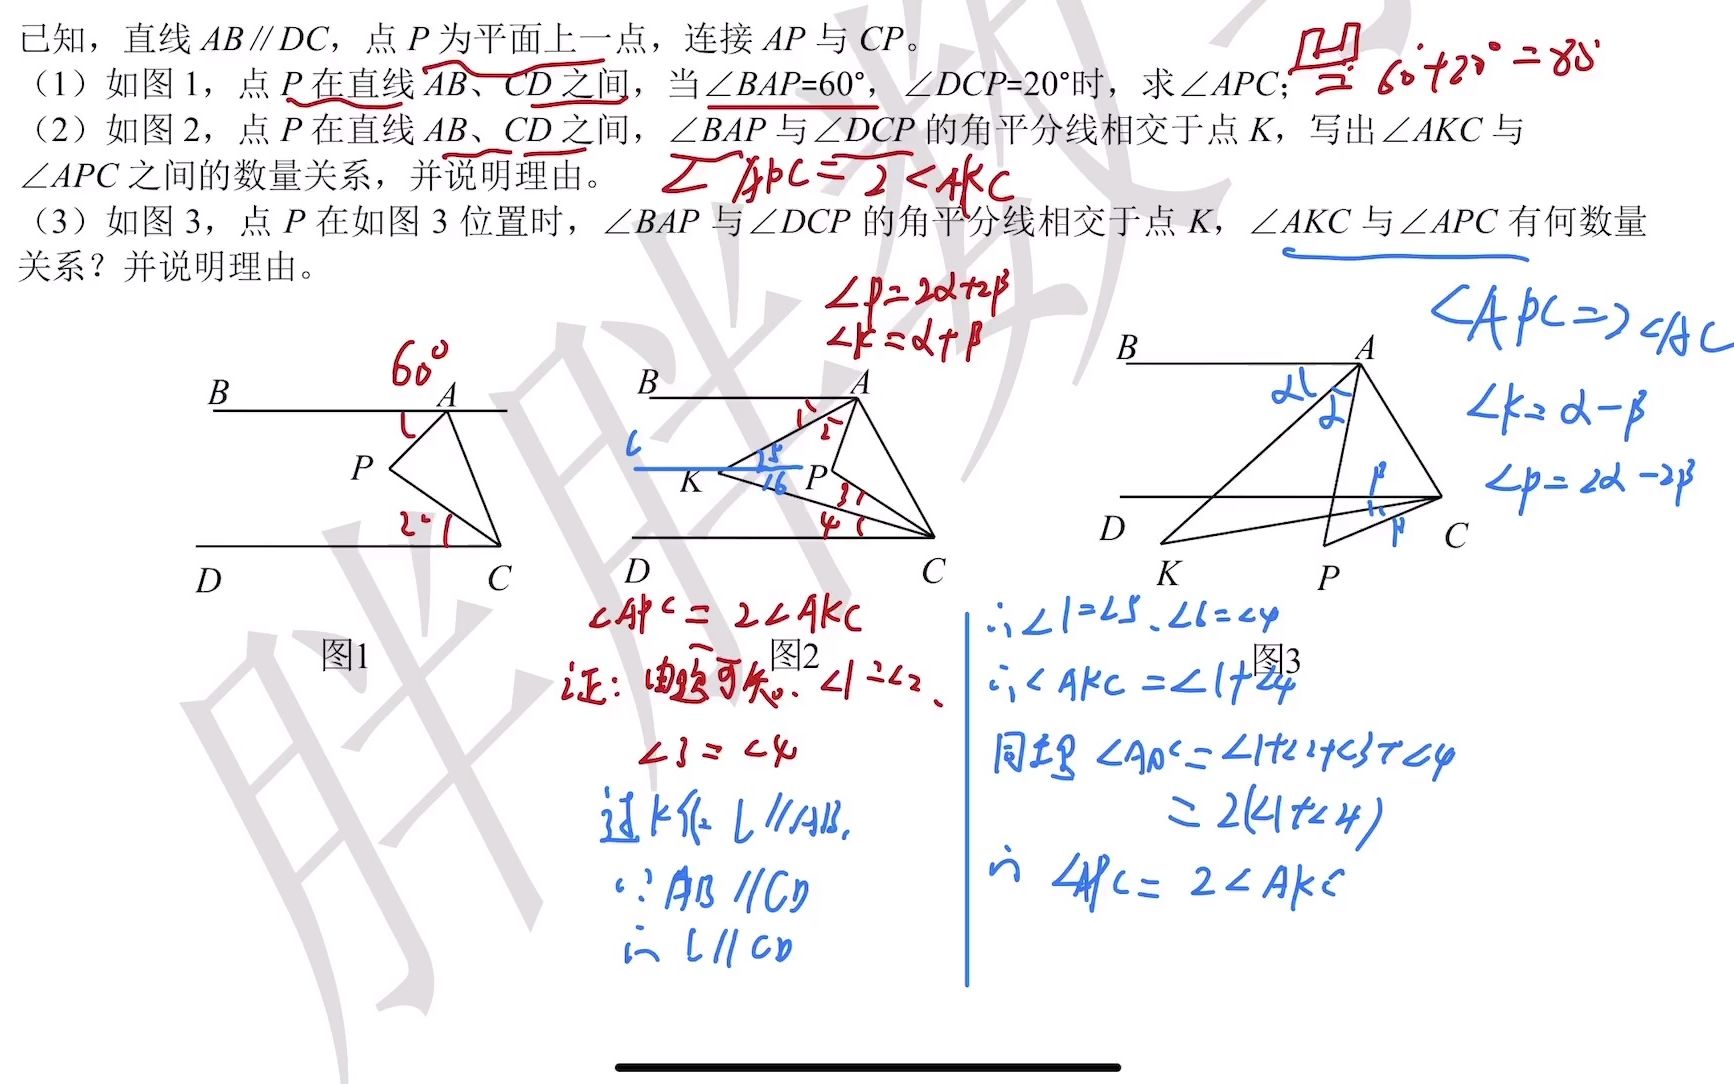 已知，直线 AB∥DC，点 P 为平面上一点，连接 AP 与 CP。
（1）如图 1，点 P 在直线 AB、CD 之间，当∠BAP=60°，∠DCP=20°时，求∠APC；
60°+20°=80°
（2）如图 2，点 P 在直线 AB、CD 之间，∠BAP 与∠DCP 的角平分线相交于点 K，写出∠AKC 与
∠APC 之间的数量关系，并说明理由。
∠APC=2∠AKC
（3）如图 3，点 P 在如图 3 位置时，∠BAP 与∠DCP 的角平分线相交于点 K，∠AKC 与∠APC 有何数量
关系？并说明理由。
∠P=2α+2β
∠K=α+β
∠K=α-β
∠P=2α-2β
60°
B A
P
D C
图1
B A
1 2
5
6
K P
3
4
D C
图2
B A
α α
β
β
D C
K P
图3
∠APC=2∠AKC
证：由题可知、∠1=∠2、
∠3=∠4
过K作 l∥AB,
∵AB∥CD
∴l∥CD
∴∠1=∠5、∠6=∠4
∴∠AKC=∠1+∠4
同理∠APC=∠1+∠2+∠3+∠4
=2(∠1+∠4)
∴∠APC=2∠AKC
胖胖数学